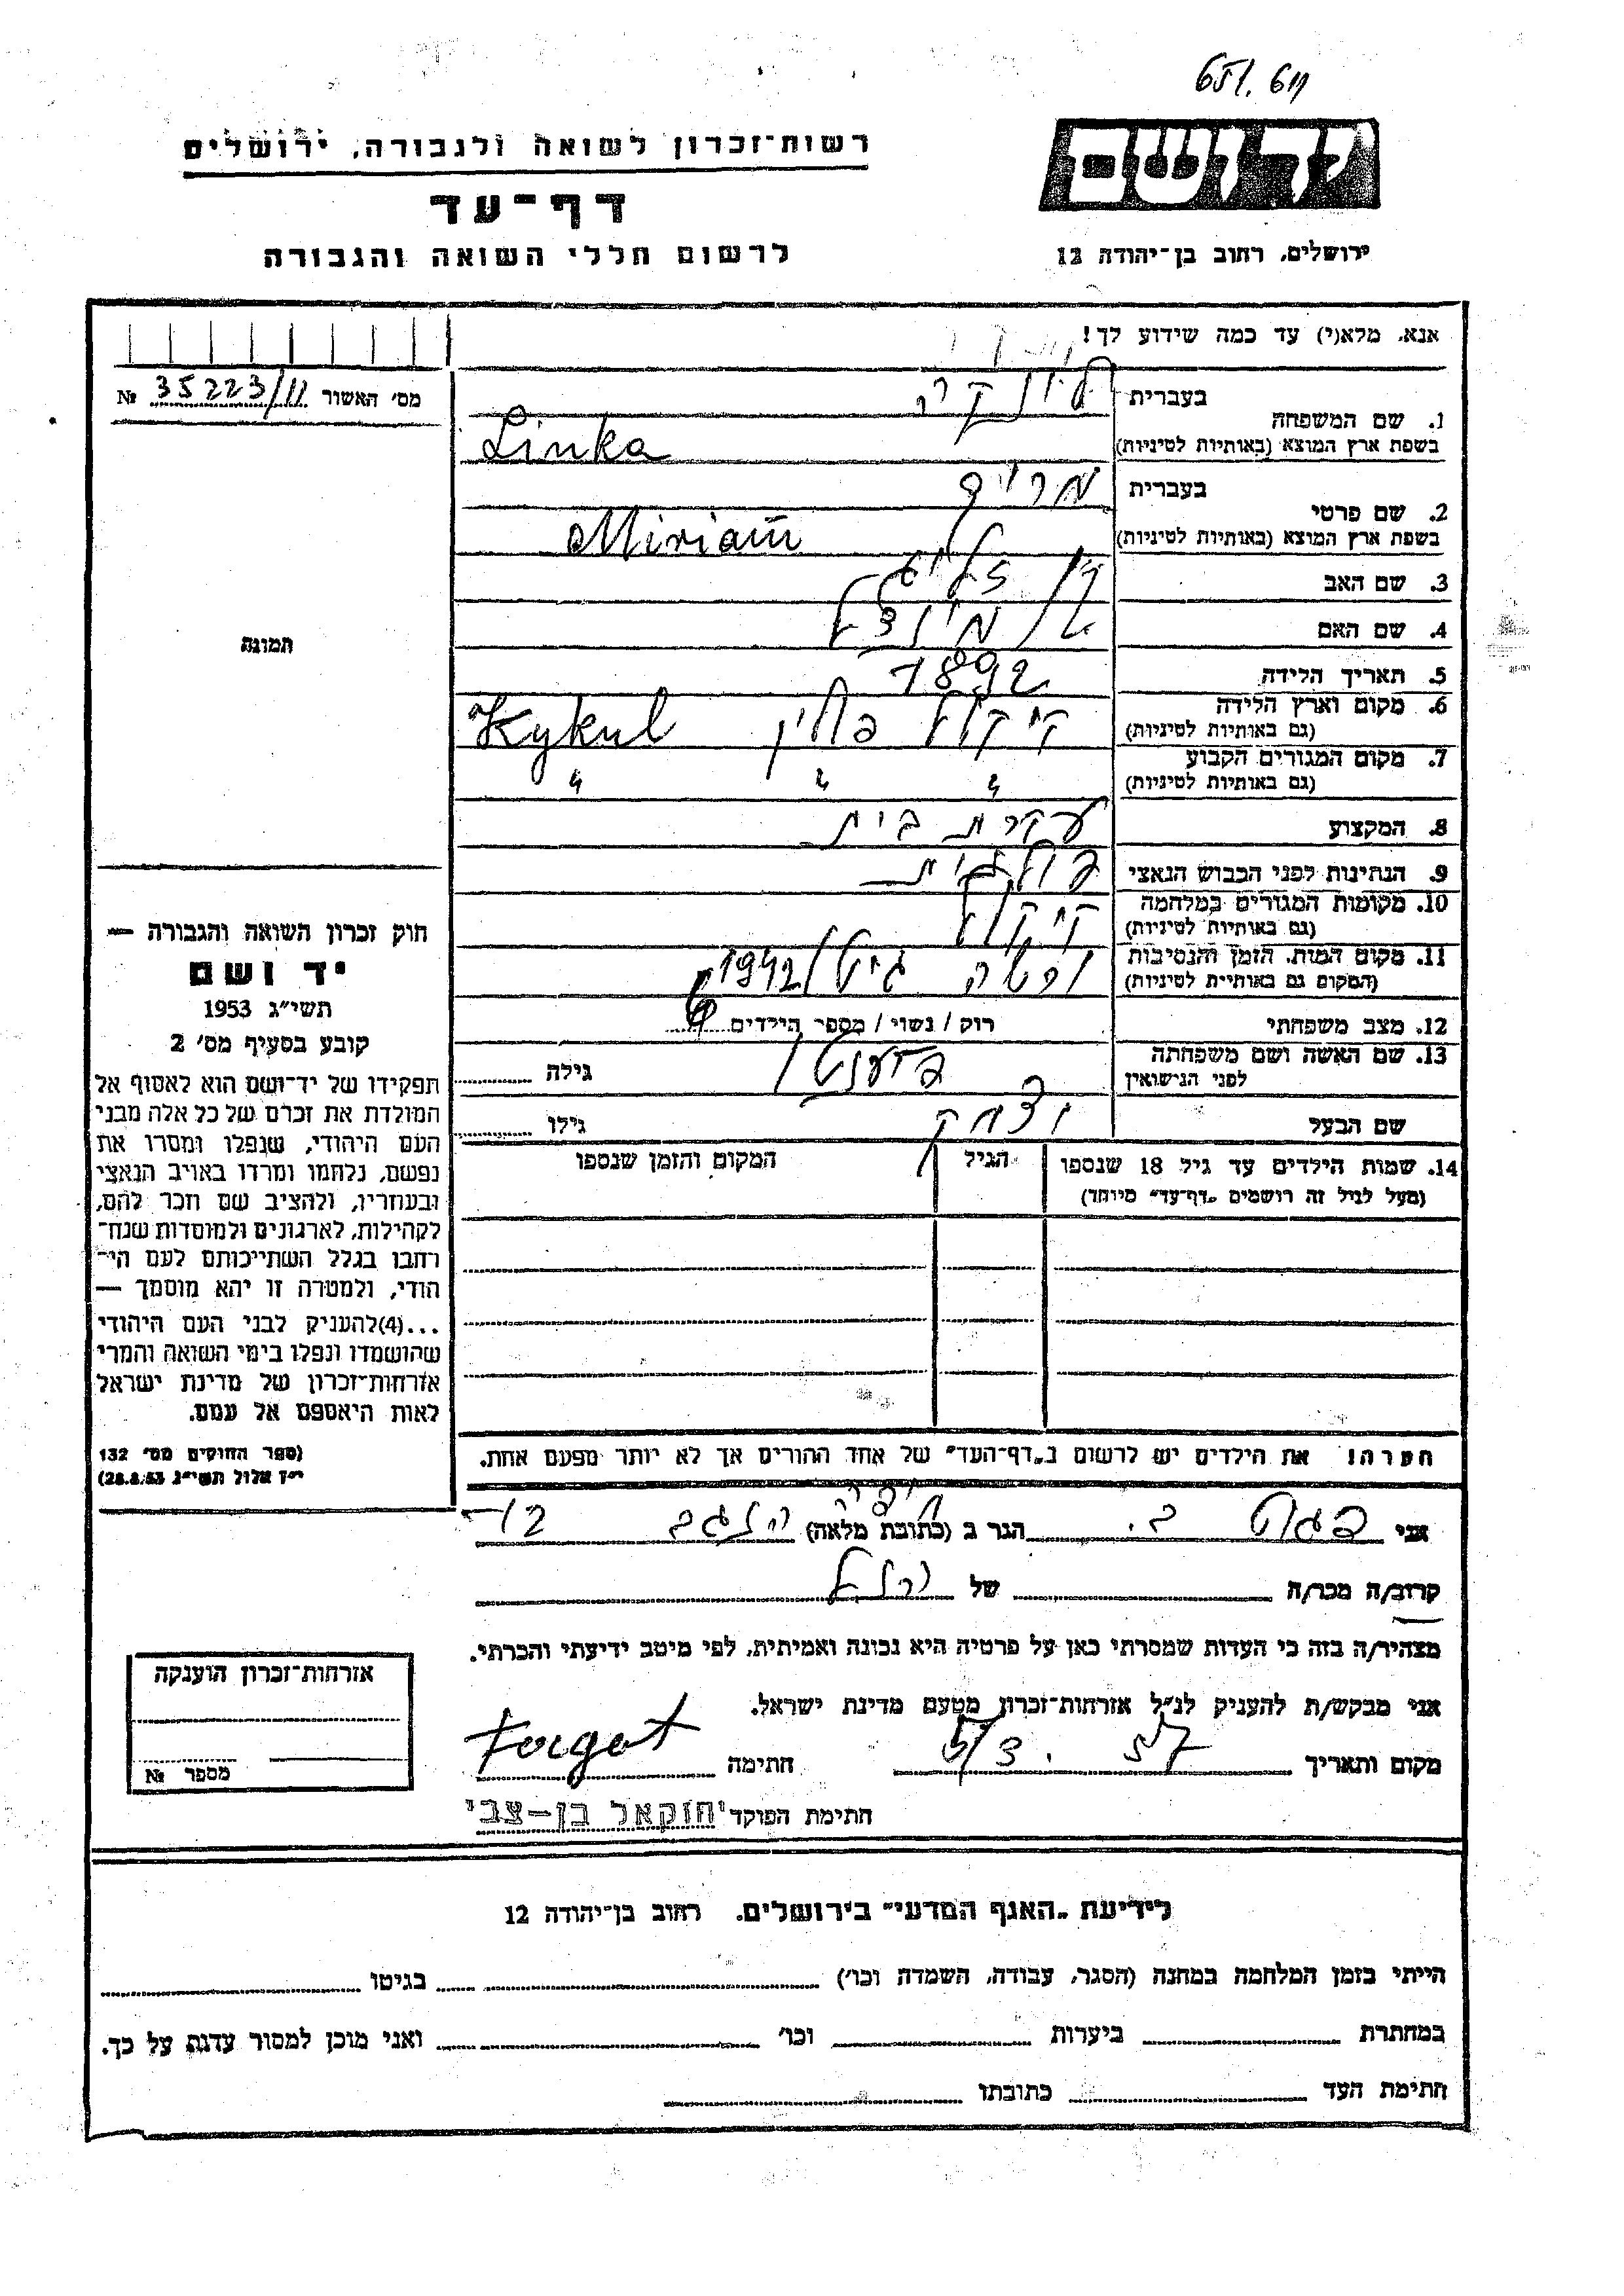 651. 611
ידושם
רשות־זכרון לשואה ולגבורה, ירושלים
דף־עד
לרשום חללי השואה והגבורה
ירושלים, רחוב בן־יהודה 12
אנא, מלא(י) עד כמה שידוע לך!
מס׳ האשור 35223/11 №
1. שם המשפחה
בעברית
בשפת ארץ המוצא (באותיות לטיניות) Linka
2. שם פרטי
בעברית מרים
בשפת ארץ המוצא (באותיות לטיניות) Miriam
3. שם האב
4. שם האם
5. תאריך הלידה 1892
6. מקום וארץ הלידה (גם באותיות לטיניות) קיקול פולין Kykul
7. מקום המגורים הקבוע (גם באותיות לטיניות) " " "
8. המקצוע עקרת בית
9. הנתינות לפני הכבוש הנאצי פולנית
10. מקומות המגורים במלחמה (גם באותיות לטיניות) קיקול
11. מקום המות, הזמן והנסיבות (המקום גם באותיות לטיניות) 1942
12. מצב משפחתי רוק / נשוי / מספר הילדים
13. שם האשה ושם משפחתה לפני הנישואין גילה
שם הבעל יצחק גילו
14. שמות הילדים עד גיל 18 שנספו (מעל לגיל זה רושמים „דף־עד" מיוחד)
הגיל
המקום והזמן שנספו
תמונה
חוק זכרון השואה והגבורה —
יד ושם
תשי״ג 1953
קובע בסעיף מס׳ 2
תפקידו של יד־ושם הוא לאסוף אל
המולדת את זכרם של כל אלה מבני
העם היהודי, שנפלו ומסרו את
נפשם, נלחמו ומרדו באויב הנאצי
ובעוזריו, ולהציב שם וזכר להם,
לקהילות, לארגונים ולמוסדות שנח־
רבו בגלל השתייכותם לעם הי־
הודי, ולמטרה זו יהא מוסמך —
...(4)להעניק לבני העם היהודי
שהושמדו ונפלו בימי השואה והמרי
אזרחות־זכרון של מדינת ישראל
לאות היאספם אל עמם.
(ספר החוקים מס׳ 132
י״ז אלול תשי״ג 28.8.53)
הערה! את הילדים יש לרשום ב„דף־העד" של אחד ההורים אך לא יותר מפעם אחת.
אני הגר ב (כתובת מלאה)
קרוב/ה מכר/ה של
מצהיר/ה בזה כי העדות שמסרתי כאן על פרטיה היא נכונה ואמיתית, לפי מיטב ידיעתי והכרתי.
אני מבקש/ת להעניק לנ״ל אזרחות־זכרון מטעם מדינת ישראל.
מקום ותאריך חתימה Forgot
חתימת הפוקד יחזקאל בן-צבי
אזרחות־זכרון הוענקה
מספר №
לידיעת „האגף המדעי" בירושלים, רחוב בן־יהודה 12
הייתי בזמן המלחמה במחנה (הסגר, עבודה, השמדה וכו׳) בגיטו
במחתרת ביערות וכו׳ ואני מוכן למסור עדות על כך.
חתימת העד כתובתו